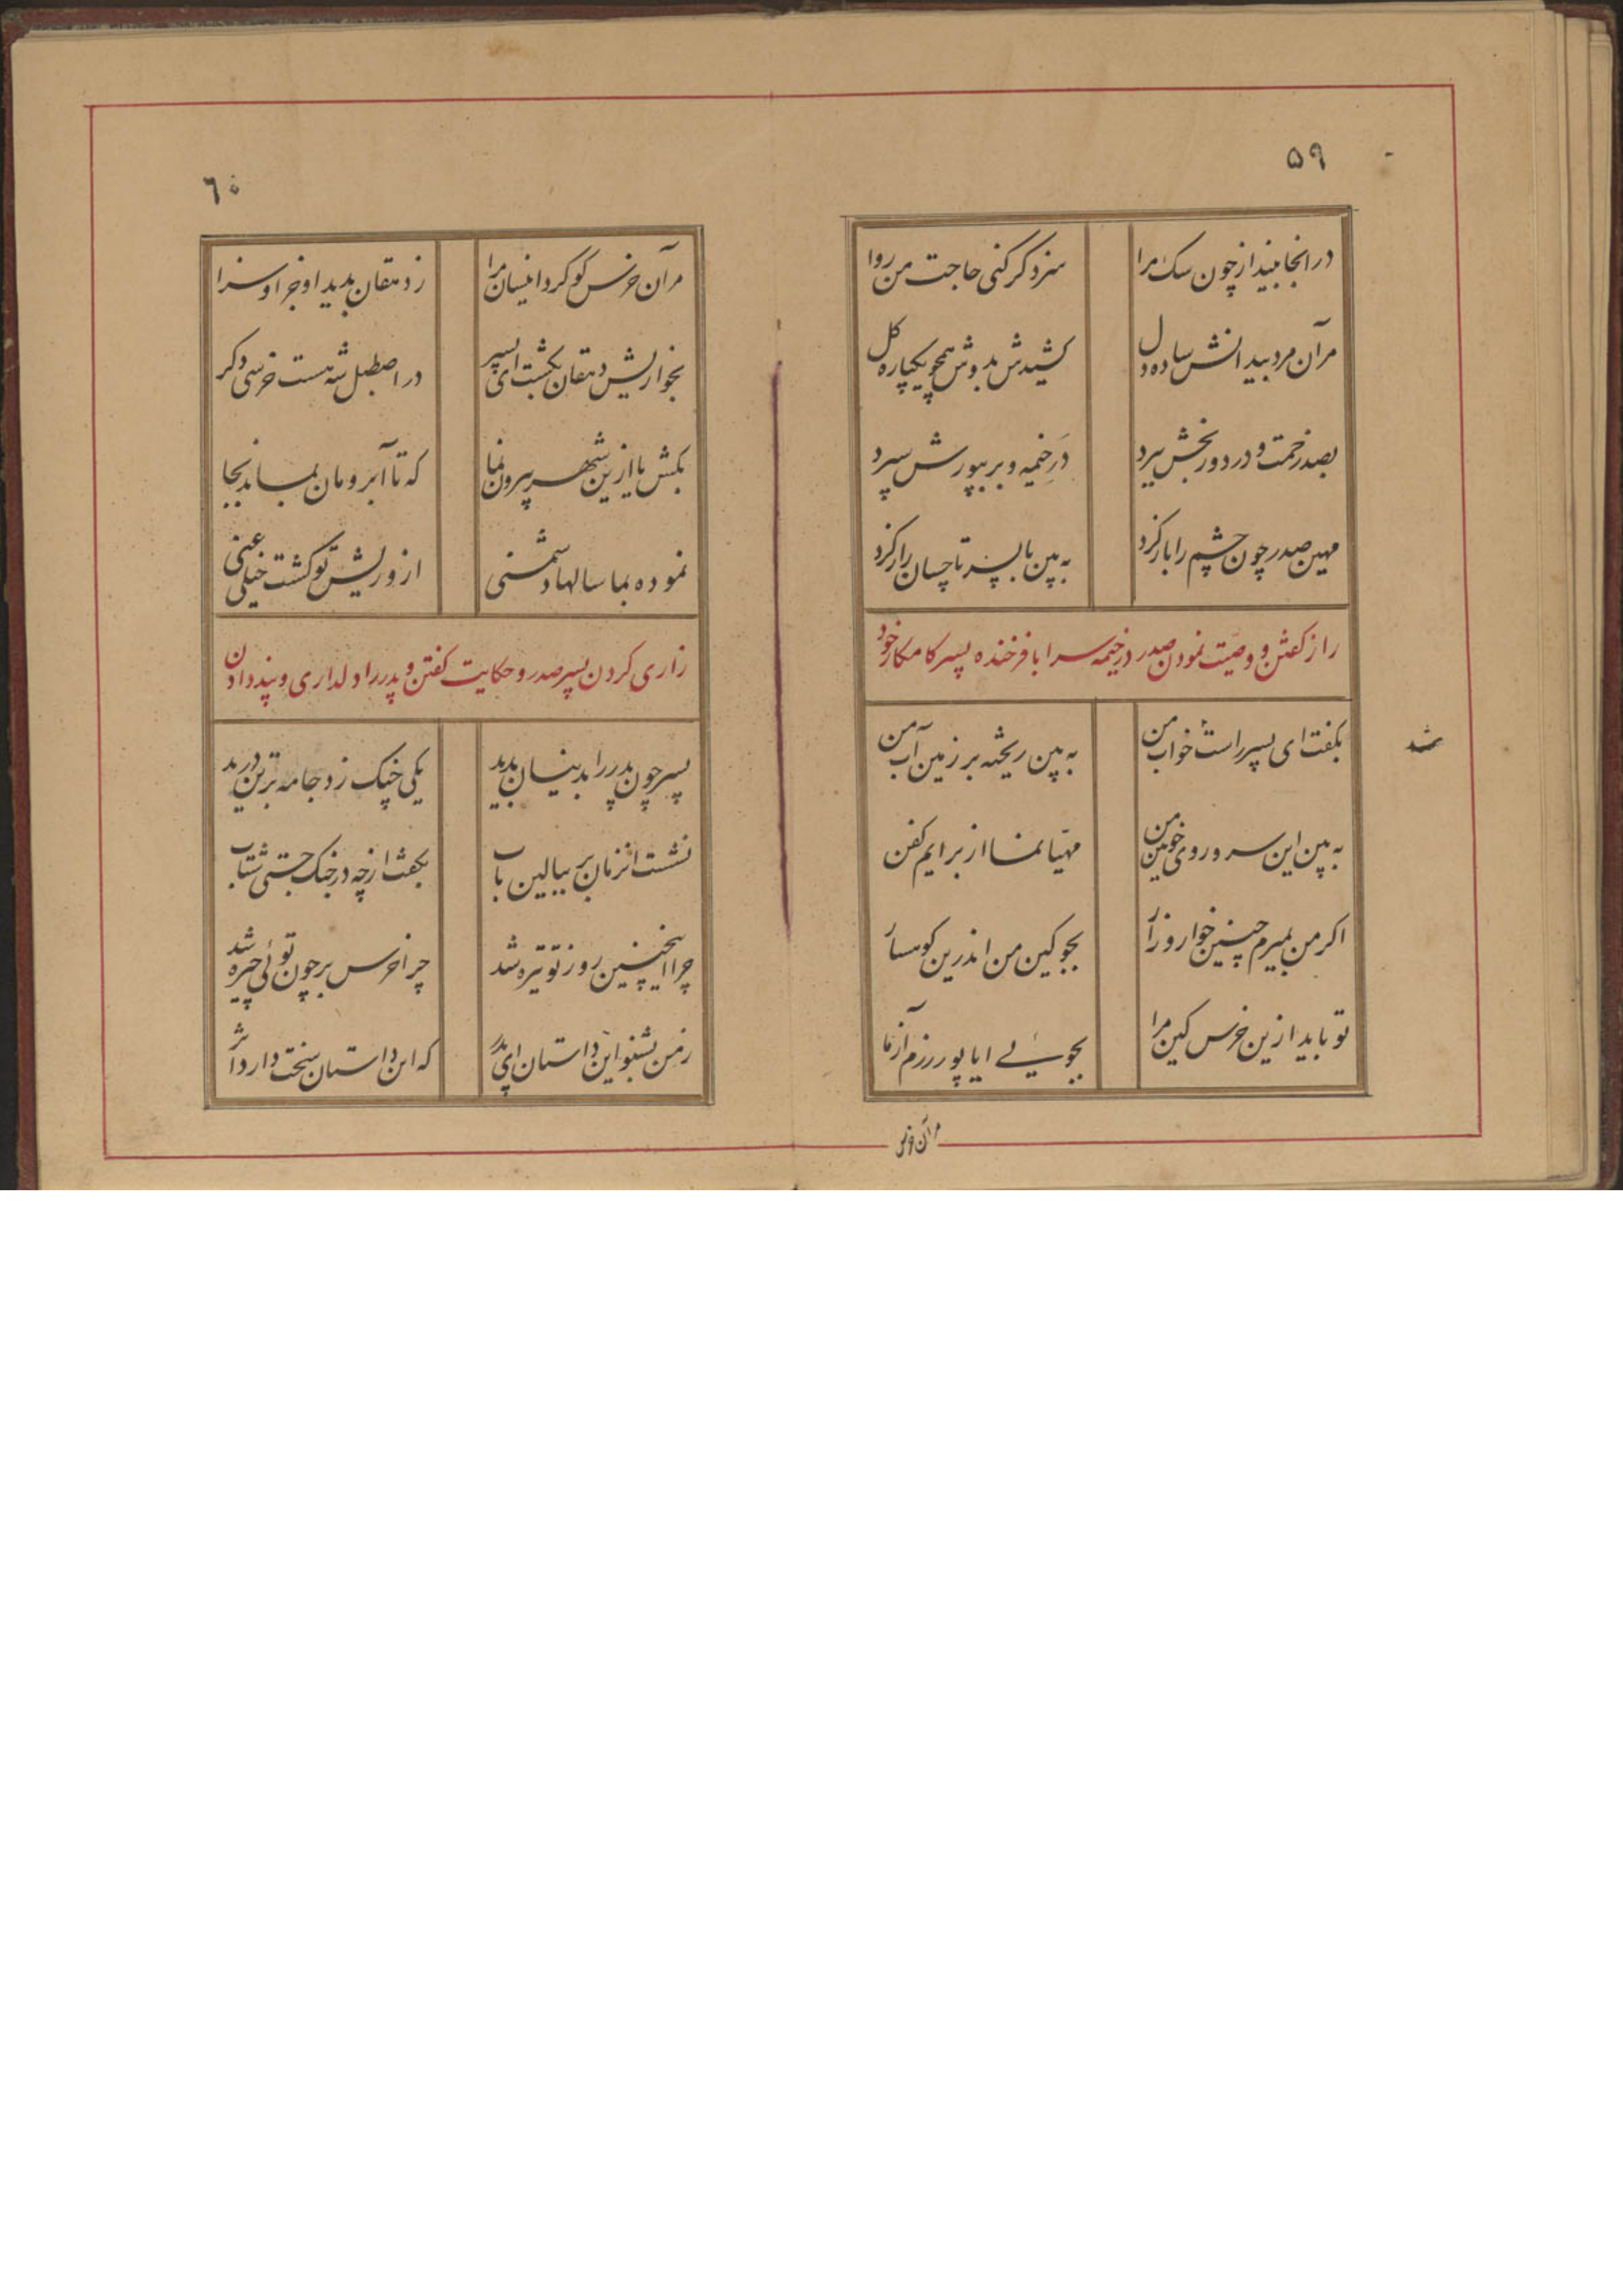 ۵۹
در انجا مینداز چون سک مرا
سزد کر کنی حاجت من روا
مر آن مرد بیدانش ساده دل
کشیدش بدوش همچو یکپاره کل
بصد زحمت و درد و رنجش ببرد
در خیمه و بر پورش سپرد
مهین صدر چون چشم را باز کرد
به پین با پسر تا چسان راز کرد
راز کفتن و وصیت نمودن صدر در خیمه سرا با فرخنده پسر کامکار خود
بکفت ای پسر راست خواب من
به پین ریخته بر زمین آب من
به پین این سر و روی خونین من
مهیا نما از برایم کفن
اکر من بمیرم چنین خوار و زار
بجو کین من اندرین کوهسار
تو باید ازین خرس کین مرا
بجوئی ایا پور رزم آزما
شد
مر آن خرس
۶۰
مر آن خرس کو کرد اینسان مرا
ز دهقان بدید او جزا و سزا
بخواریش دهقان بکشت ای پسر
در اصطبل شه هست خرسی دکر
بکش یا ازین شهر بیرون نما
که تا آبرومان بماند بجا
نموده بما سالها دشمنی
از و ریش تو کشت خیلی غنی
زاری کردن پسر صدر و حکایت کفتن و پدر را دلداری و پند دادن
پسر چون پدر را بدینسان بدید
یکی جیک زد جامه بر تن درید
نشست انزمان بر ببالین باب
بکفت از چه در جنک جستی شتاب
چرا اینچنین روز تو تیره شد
چرا خرس بر چون توئی چیره شد
ز من بشنو این داستان ای پدر
که این داستان سخت دارد اثر